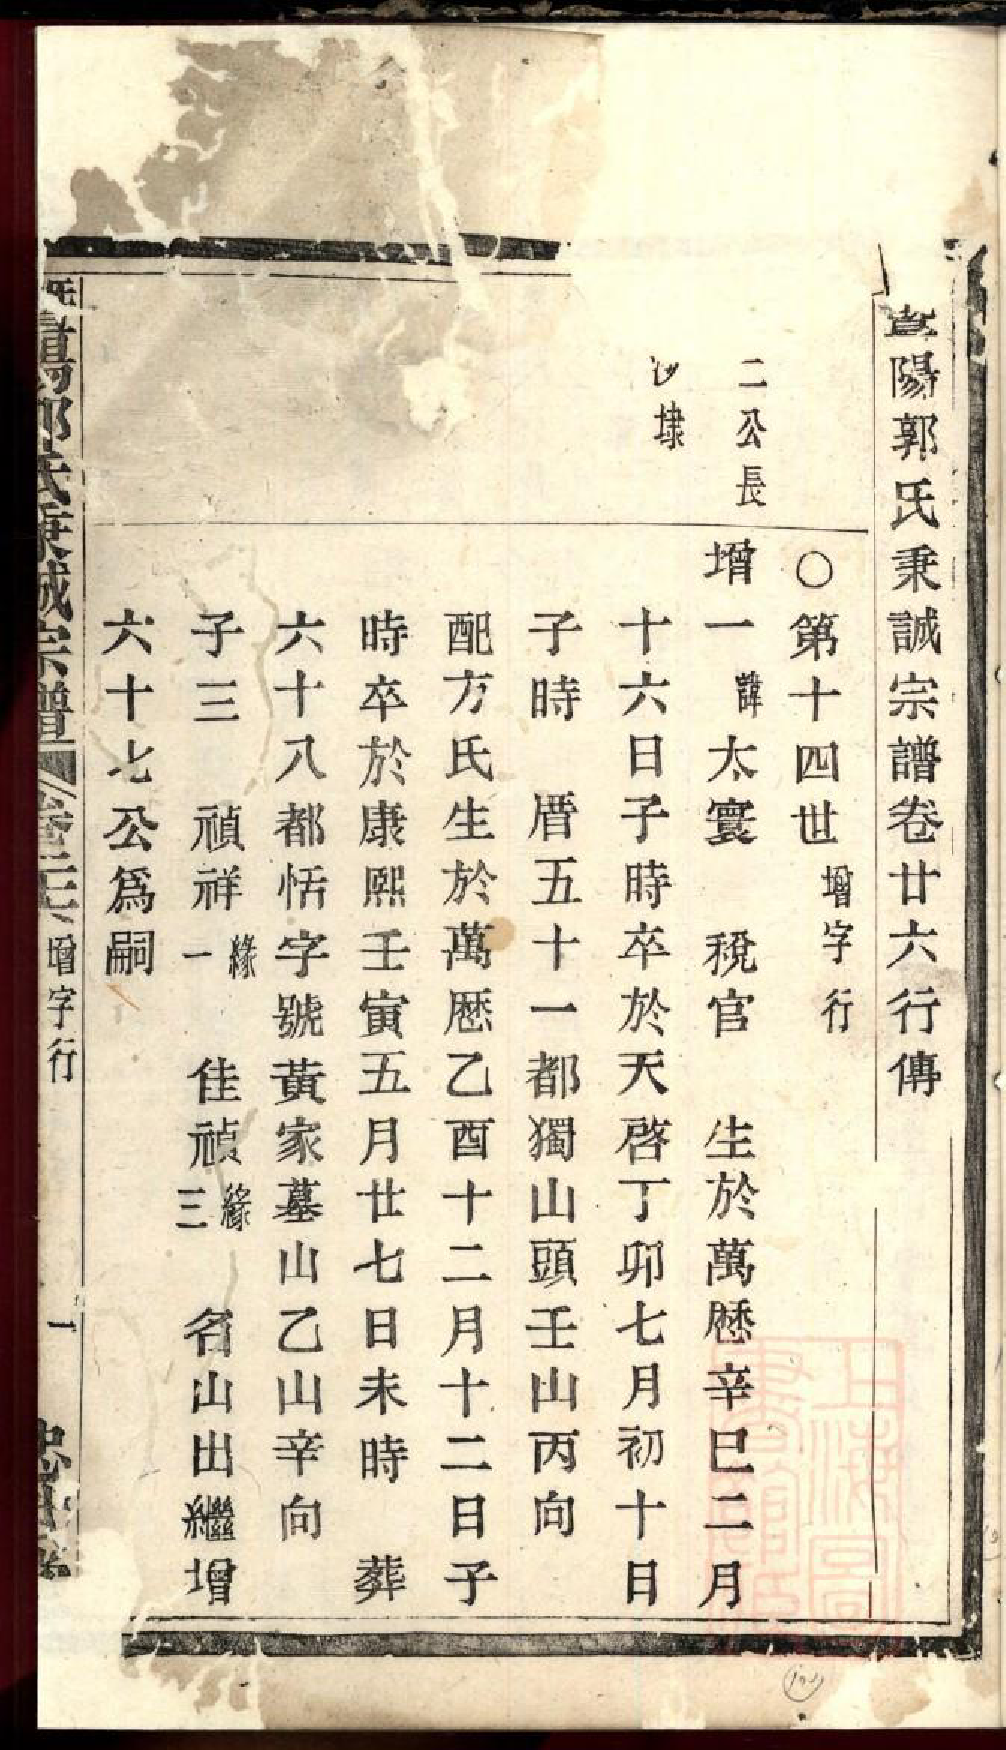 陽郭氏秉誠宗譜卷廿六行傳
○第十四世 增字行
二公長
增一 諱 太寰 稅官 生於萬歷辛巳二月
沙埭
十六日子時卒於天啓丁卯七月初十日
子時 厝五十一都獨山頭壬山丙向
配方氏生於萬歷乙酉十二月十二日子
時卒於康熙壬寅五月廿七日未時 葬
六十八都恬字號黃家墓山乙山辛向
子三 禎祥 緣一 佳禎 緣三 名山出繼增
六十七公爲嗣
陽郭氏秉誠宗譜 卷廿六 增字行 一
上海圖書館藏